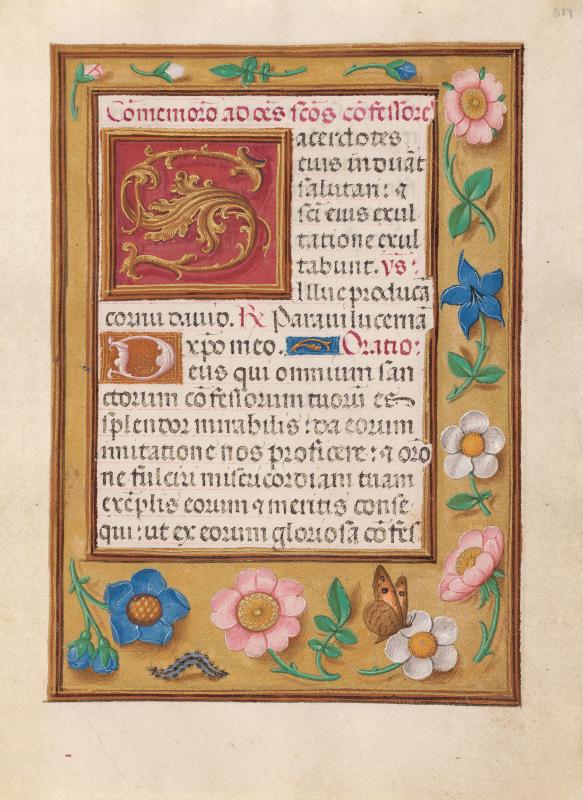 319
Cōmemorō ad oēs sc̄ōs cōfessore͛
Sacerdotes
eius īnduāt
salutari: ⁊
sc̄i eius exul
tatione exul
tabunt. v̄s:
Illuc producā
cornu dauid. Rx Paraui lucernā
xp̄o meo. Oratio:
Deus qui omnium san
ctorum cōfessorum tuorū es
splendor mirabilis: da eorum
imitatione nos proficere: ⁊ orō
ne fulciri misericordiam tuam
exēplis eorum ⁊ meritis conse
qui: ut ex eorum gloriosā cōfes